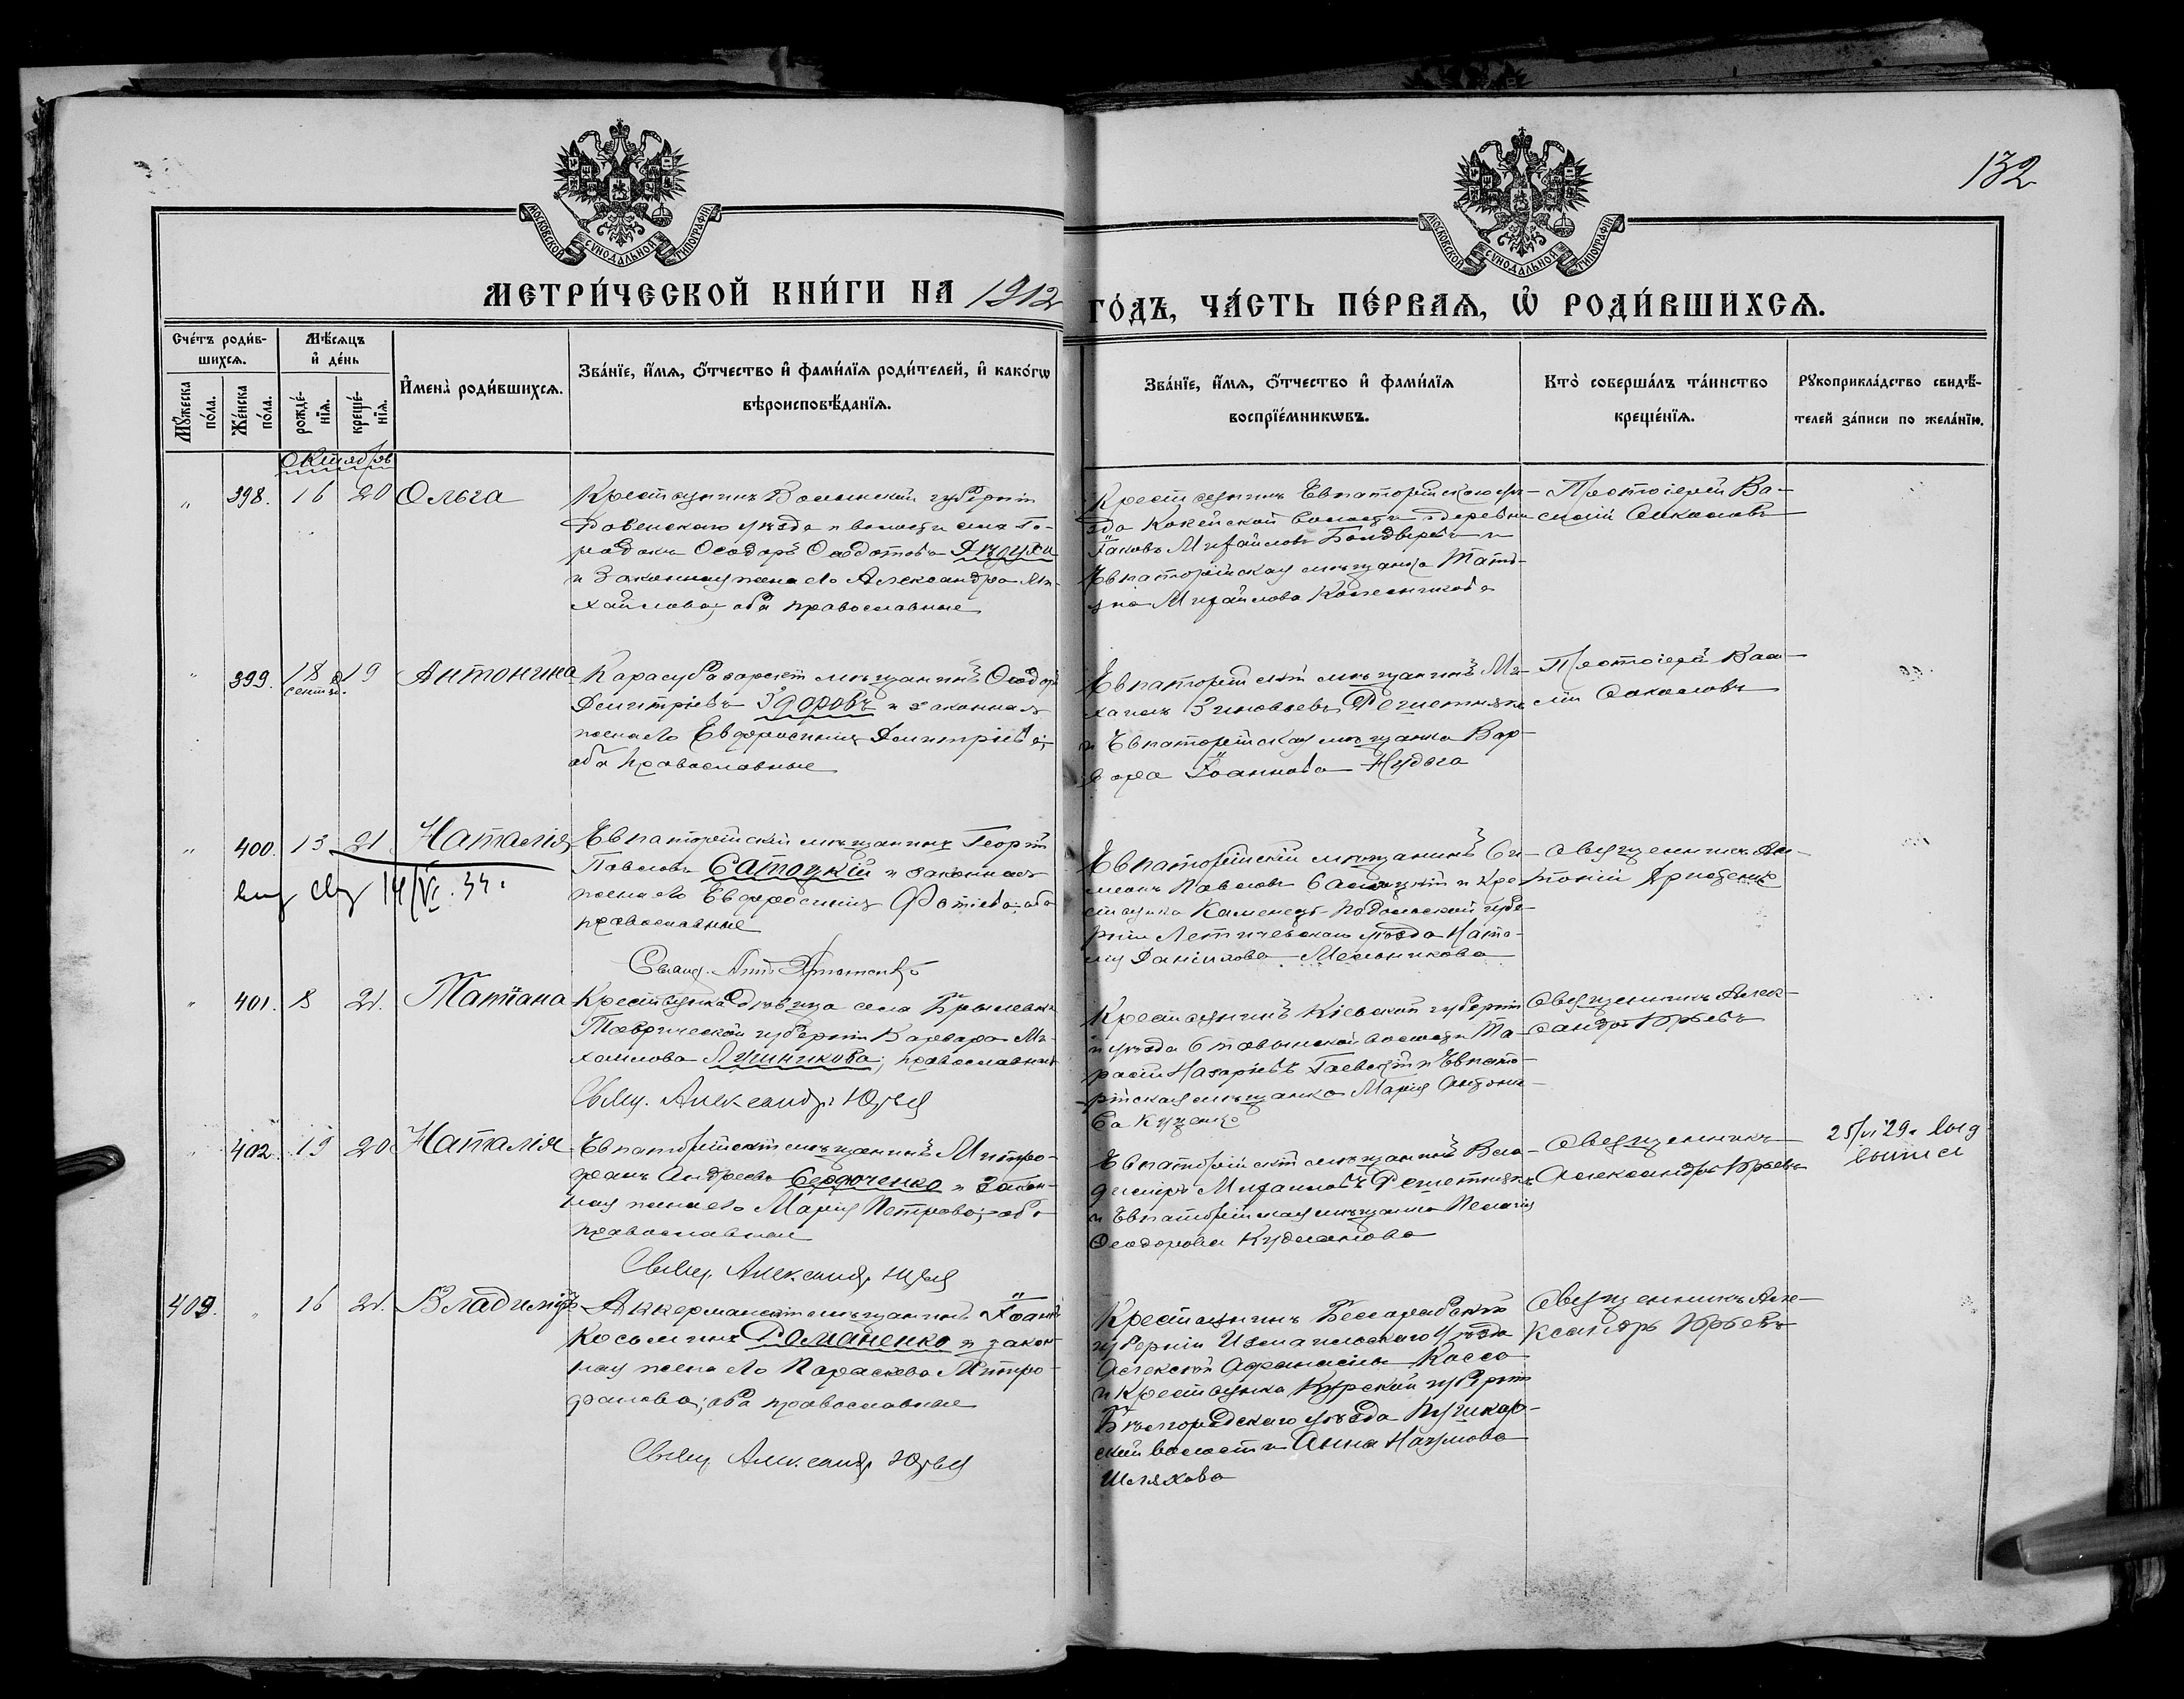 132
МОСКОВСКОЙ СѴНОДАЛЬНОЙ ТИПОГРАФІИ
МОСКОВСКОЙ СѴНОДАЛЬНОЙ ТИПОГРАФІИ
МЕТРИ́ЧЕСКОЙ КНИ́ГИ НА 1912 ГО́ДЪ, ЧА́СТЬ ПЕ́РВАѦ, Ѡ҆ РОДИ́ВШИХСѦ.
Сче́тъ роди́в-
шихсѧ.
Мꙋ́жеска по́ла.
Же́нска по́ла.
Мѣ́сѧцъ
и҆ де́нь
рожде́-
нїѧ.
креще́-
нїѧ.
И҆мена̀ роди́вшихсѧ.
Зва́нїе, и҆́мѧ, ѻ҆́тчество и҆ фами́лїѧ роди́телей, и҆ како́гѡ
вѣроисповѣ́данїѧ.
Зва́нїе, и҆́мѧ, ѻ҆́тчество и҆ фами́лїѧ
воспрїе́мникѡвъ.
Кто̀ соверша́лъ та́инство
креще́нїѧ.
Рꙋкоприкла́дство свидѣ́-
телей за́писи по жела́нїю.
Октябрь
" 398. 16 20 Ольга
Крестьянинъ Волынской губерніи
Ровенскаго уѣзда и волости села Го-
родокъ Ѳеодоръ Ѳеодотовъ
и законная жена его Александра Ми-
хайлова; оба православные
Крестьянинъ Евпаторійскаго уѣ-
зда Кокейской волости деревни
Іаковъ Михайловъ и
Евпаторійская мѣщанка Татья-
на Михайлова Колесникова
Протоіерей Ва-
силій Соколовъ
" 399. 18 сентяб. 19 Антонина
Карасубазарскій мѣщанинъ Ѳеодоръ
Димитріевъ Здоровъ и законная
жена его Евфросинія Димитріева;
оба православные
Евпаторійскій мѣщанинъ Ми-
хаилъ Зиновьевъ Решетнякъ
и Евпаторійская мѣщанка Вар-
вара Іоаннова Нудьга
Протоіерей Васи-
лій Соколовъ
" 400. 13 21 Наталія
14/VI.34.
Евпаторійскій мѣщанинъ Георгій
Павловъ Сатоцкій и законная
жена его Евфросинія Фотіева; оба
православные
Евпаторійскій мѣщанинъ Си-
меонъ Павловъ и кре-
стьянка Каменецъ-Подольской губе-
рніи Летичевскаго уѣзда Ната-
лія Даніилова Мельникова
Священникъ Ан-
тоній
" 401. 18 21. Татіана
Крестьянка дѣвица села
Таврической губерніи Варвара Ми-
хаилова Лушникова; православная
Свящ. Александръ Юрьевъ
Крестьянинъ Кіевской губерніи
и уѣзда волости Та-
расій Назаріевъ Гаевскій и Евпато-
рійская мѣщанка Марія Антоніе-
ва
Священникъ Алек-
сандръ Юрьевъ
" 402. 19 20 Наталія
Евпаторійскій мѣщанинъ Митро-
фанъ Андреевъ Сердюченко и закон-
ная жена его Марія Петрова; оба
православные
Свящ. Александръ Юрьевъ
Евпаторійскій мѣщанинъ Вла-
диміръ Михаиловъ Решетнякъ
и Евпаторійская мѣщанка Пелагія
Ѳеодорова Кудланова
Священникъ
Александръ Юрьевъ
25/VI 29 г.
409. " 16 21. Владиміръ
Аккерманскій мѣщанинъ Іоаннъ
Косьминъ Романенко и закон-
ная жена его Параскева Митро-
фанова; оба православные
Свящ. Александръ Юрьевъ
Крестьянинъ Бессарабской
губерніи Измаильскаго уѣзда
Алексій Афанасіевъ Косса
и крестьянка Курской губерніи
Бѣлгородскаго уѣзда Пушкар-
ской волости Анна Наумова
Шляхова
Священникъ Але-
ксандръ Юрьевъ